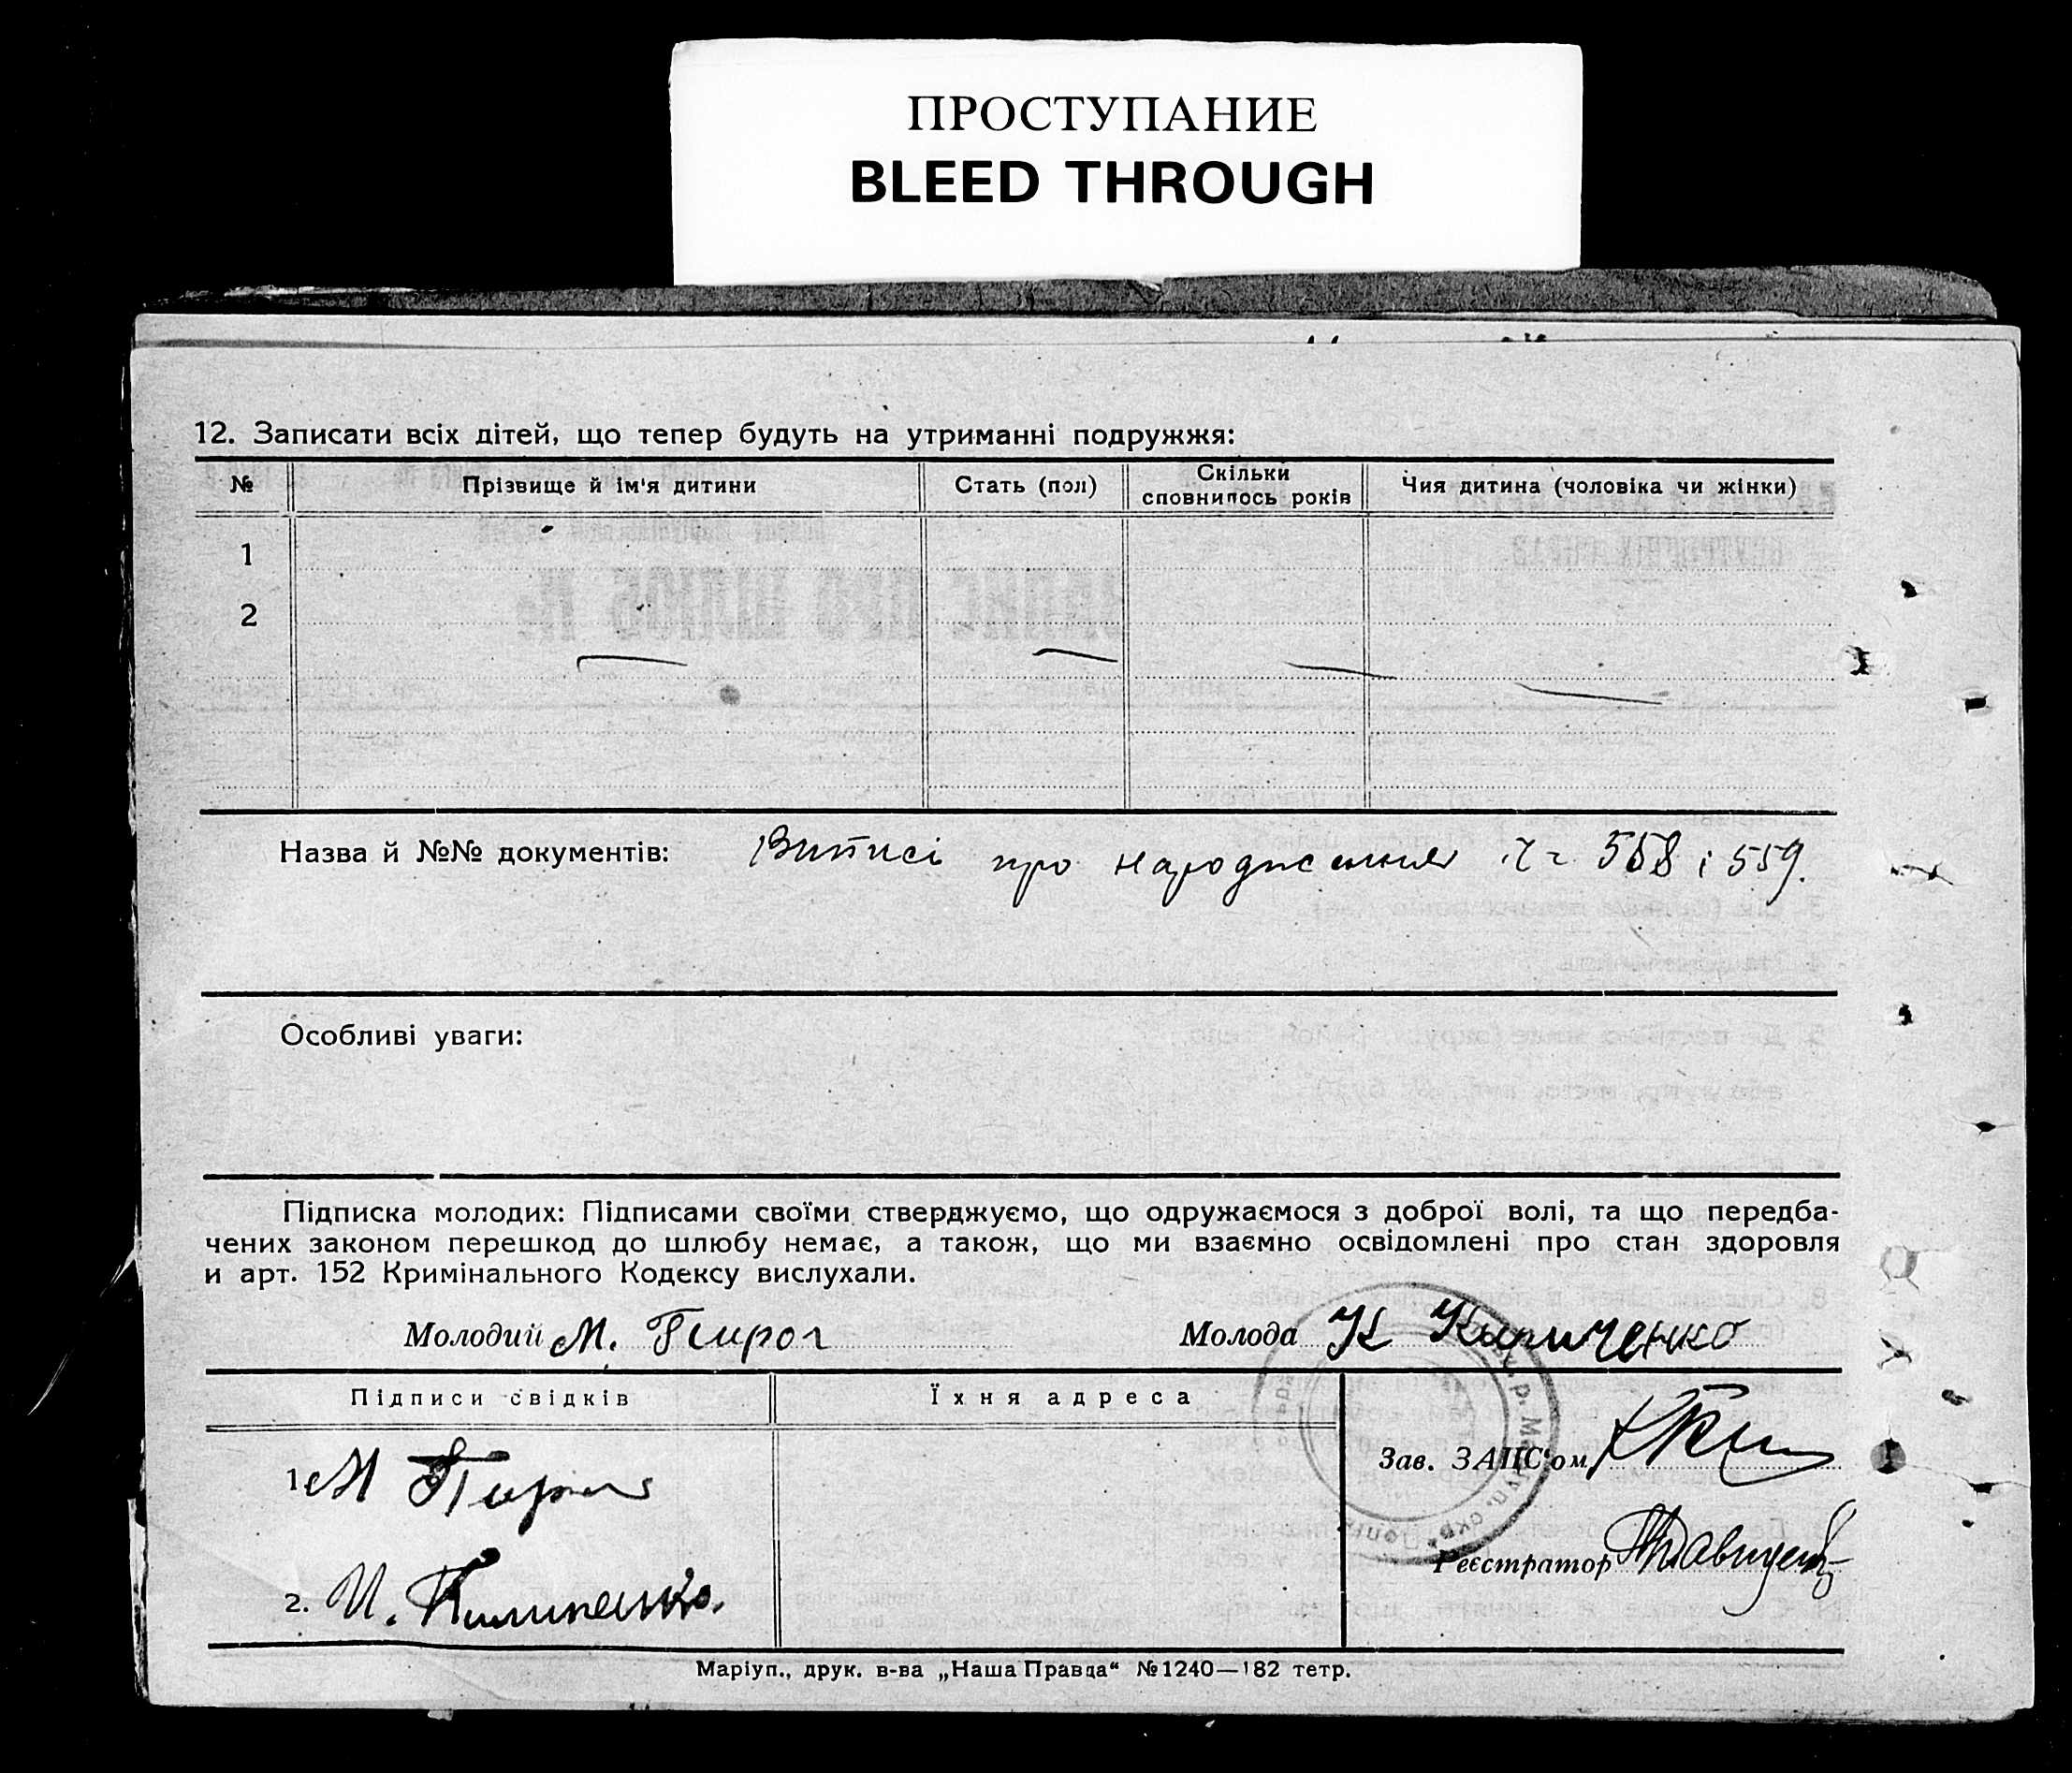 ПРОСТУПАНИЕ
BLEED THROUGH
12. Записати всіх дітей, що тепер будуть на утриманні подружжя:
№ Прізвище й ім'я дитини Стать (пол) Скільки сповнилось років Чия дитина (чоловіка чи жінки)
1
2
Назва й №№ документів: Виписі про народження ч ч 558 і 559.
Особливі уваги:
Підписка молодих: Підписами своїми стверджуємо, що одружаємося з доброї волі, та що передба-
чених законом перешкод до шлюбу немає, а також, що ми взаємно освідомлені про стан здоровля
и арт. 152 Кримінального Кодексу вислухали.
Молодий М. Пирог Молода К Кириченко
Підписи свідків Їхня адреса
1 М
Зав. ЗАПС'ом
2. И.
Реєстратор
Маріуп., друк. в-ва „Наша Правда“ №1240—182 тетр.